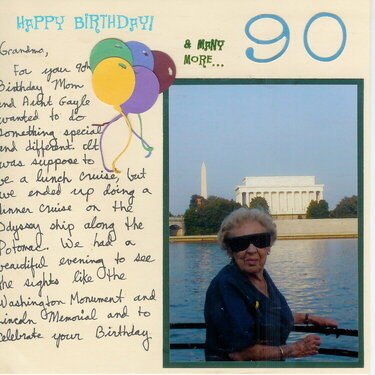 HAPPY BIRTHDAY!
& MANY
MORE...
90
Grandma,
For your 90th
Birthday Mom
and Aunt Gayle
wanted to do
something special
and different. It
was suppose to
be a lunch cruise, but
we ended up doing a
dinner cruise on the
Odyssey ship along the
Potomac. We had a
beautiful evening to see
the sights like the
Washington Monument and
Lincoln Memorial and to
celebrate your Birthday